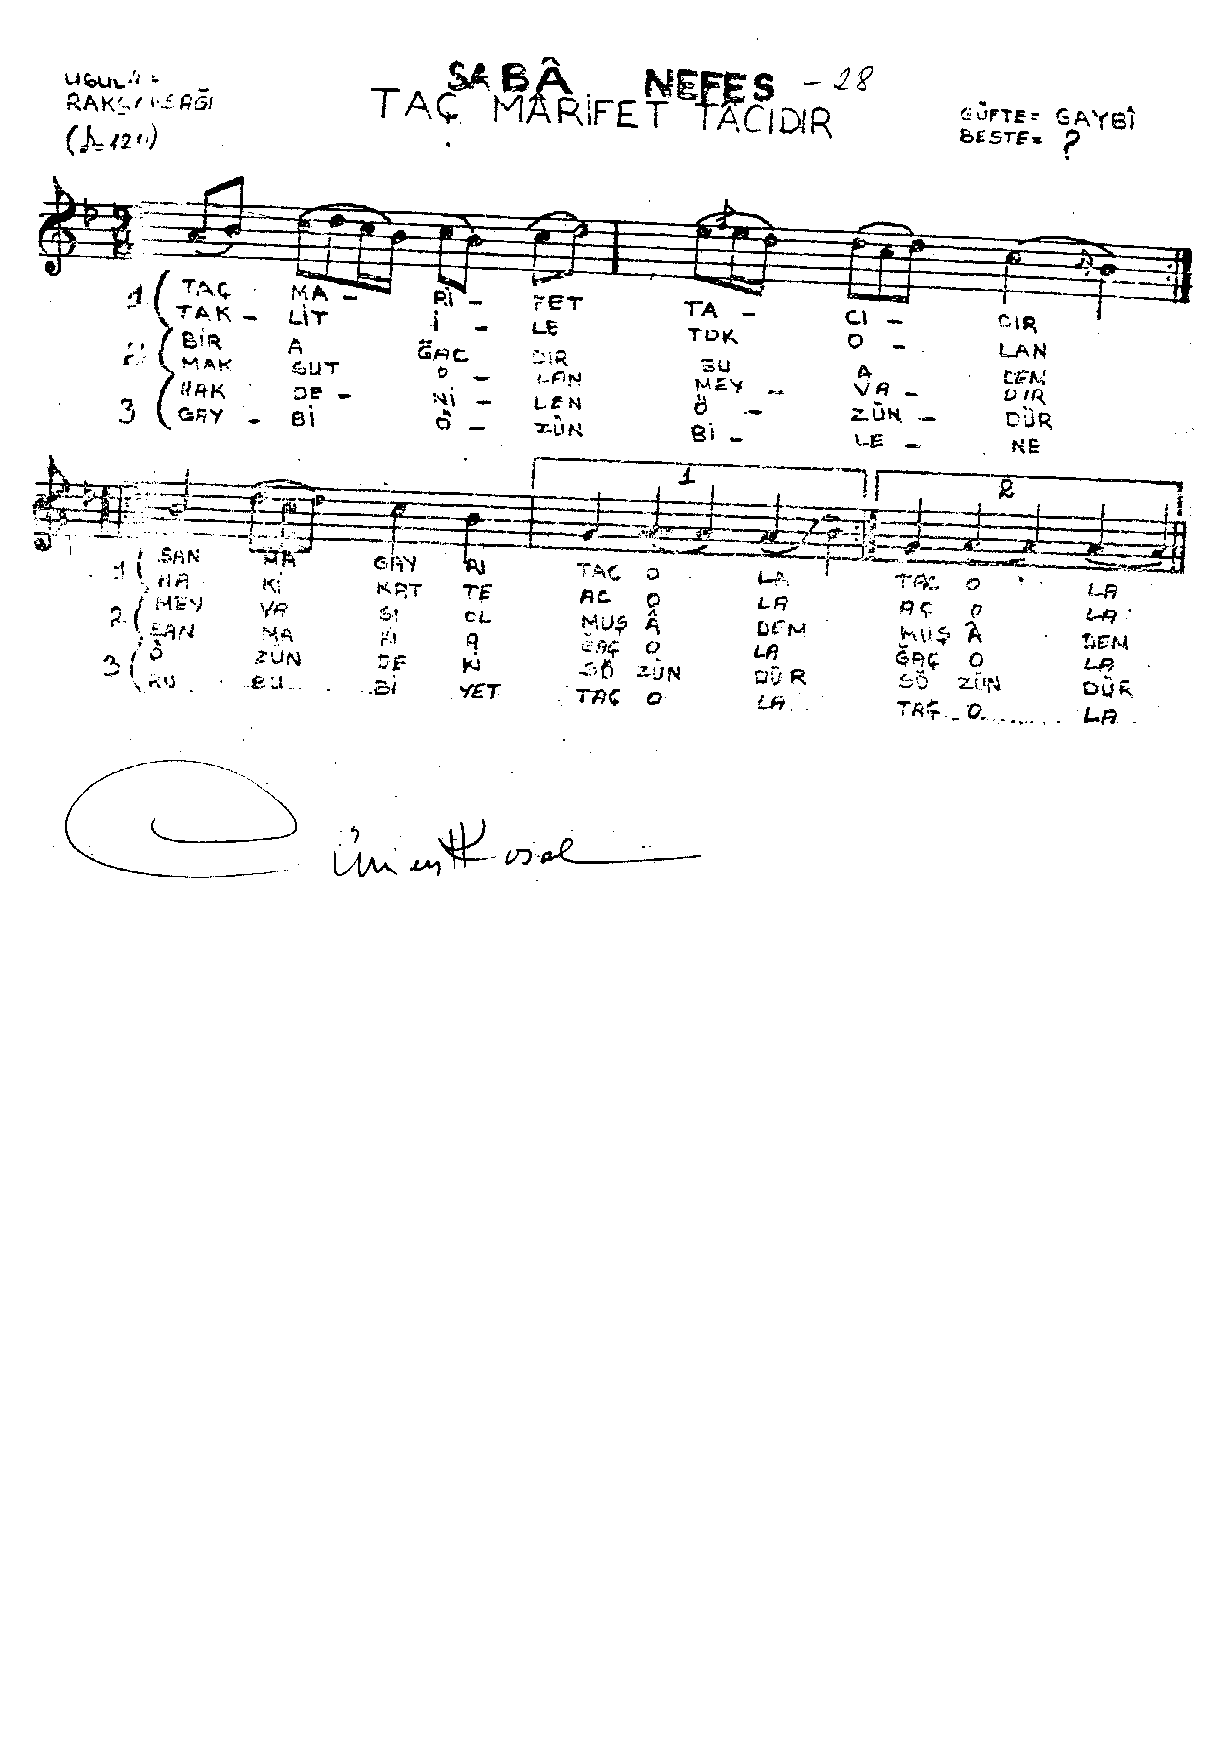 SABÂ NEFES - 28
TAÇ MÂRİFET TÂCIDIR
USULÜ =
RAKS AKSAĞI
GÜFTE= GAYBÎ
BESTE= ?
1 TAÇ MA - Rİ - FET TA - CI - DIR
TAK - LİT İ - LE TOK O - LAN
2 BİR A ĞAÇ DIR BU A DEM
MAK SUT O - LAN MEY - VA - DIR
3 HAK DE - Nİ - LEN Ö - ZÜN - DÜR
GAY - Bİ Ö - ZÜN Bİ - LE - NE
1 2
1 SAN MA GAY RI TAÇ O LA TAÇ O LA
HA Kİ KAT TE AC O LA AÇ O LA
2 MEY VA SI OL MUŞ Â DEM MUŞ Â DEM
SAN MA A ĞAÇ O LA ĞAÇ O LA
3 Ö ZÜN DE Kİ SÖ ZÜN DÜR SÖ ZÜN DÜR
RU BU Bİ YET TAÇ O LA TAÇ O LA